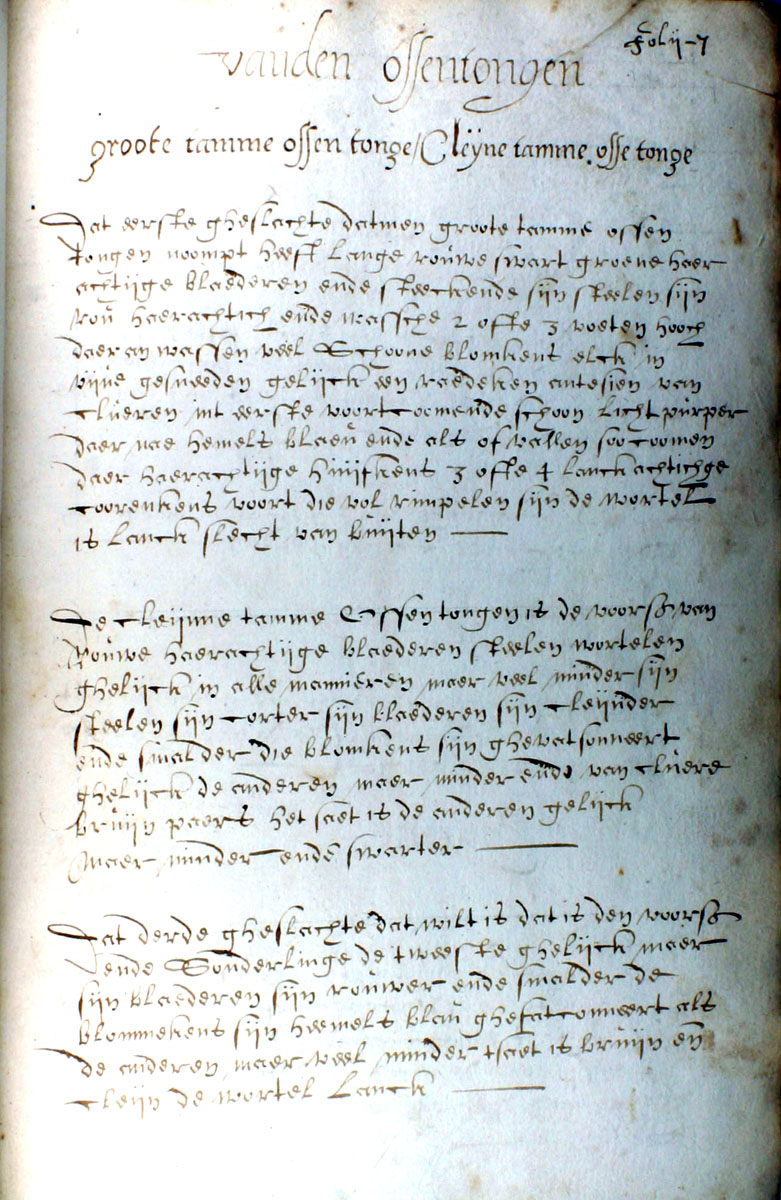 folij-7
vanden ossentongen
groote tamme ossen tonge / Cleyne tamme. osse tonge
Dat eerste gheslachte datmen groote tamme ossen
tongen noompt heeft lange rouwe swart groene haer
achtijge blaederen ende steeckende sijn steelen sijn
rou haerachtich ende wassche 2 ofte 3 voeten hooch
daer an wassen veel Schoone blomkens elck in
vijve gesneeden gelijck een raedeken antesien van
clueren int eerste voortcoomende schoon licht purper
daer nae hemels blaeu ende als ofvallen soo coomen
daer haerachtijge huijskens 3 offe 4 lanckachtichge
coorenkens voort die vol rimpelen sijn de wortel
is lanck slecht van buijten
De cleijnne tamme Ossentongen is de voors van
Rouwe haerachtijge blaederen steelen wortelen
ghelijck in alle mannieren maer veel minder sijn
steelen sijn corter sijn blaederen sijn cleijnder
ende smalder die blomkens sijn ghevatsonneert
ghelijck de anderen maer minder ende van cluere
bruijn paers het saet is de anderen gelijck
Maer minder ende swarter
Dat derde gheslachte dat wilt is dat is den voors
ende Sonderlinge de tweeste ghelijck maer
sijn blaederen sijn rouwer ende smalder de
blommekens sijn heemels blau ghefatconneert als
de anderen maer veel minder tsaet is bruijn en
cleijn de wortel lanck